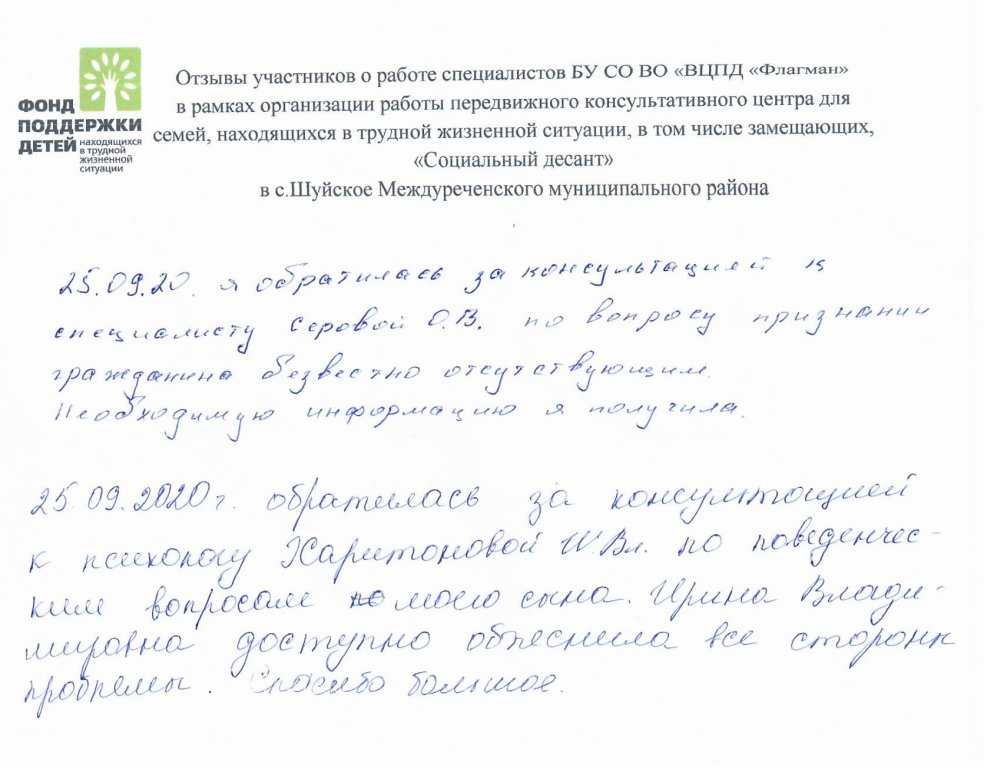 ФОНД
ПОДДЕРЖКИ
ДЕТЕЙ находящихся
в трудной
жизненной
ситуации
Отзывы участников о работе специалистов БУ СО ВО «ВЦПД «Флагман»
в рамках организации работы передвижного консультативного центра для
семей, находящихся в трудной жизненной ситуации, в том числе замещающих,
«Социальный десант»
в с.Шуйское Междуреченского муниципального района
25.09.20. я обратилась за консультацией к
специалисту Серовой О.В. по вопросу признании
гражданина безвестно отсутствующим.
Необходимую информацию я получила.
25.09.2020г. обратилась за консультацией
к психологу Харитоновой И.Вл. по поведенчес-
ким вопросам моего сына. Ирина Влади-
мировна доступно объяснила все стороны
проблемы. Спасибо большое.